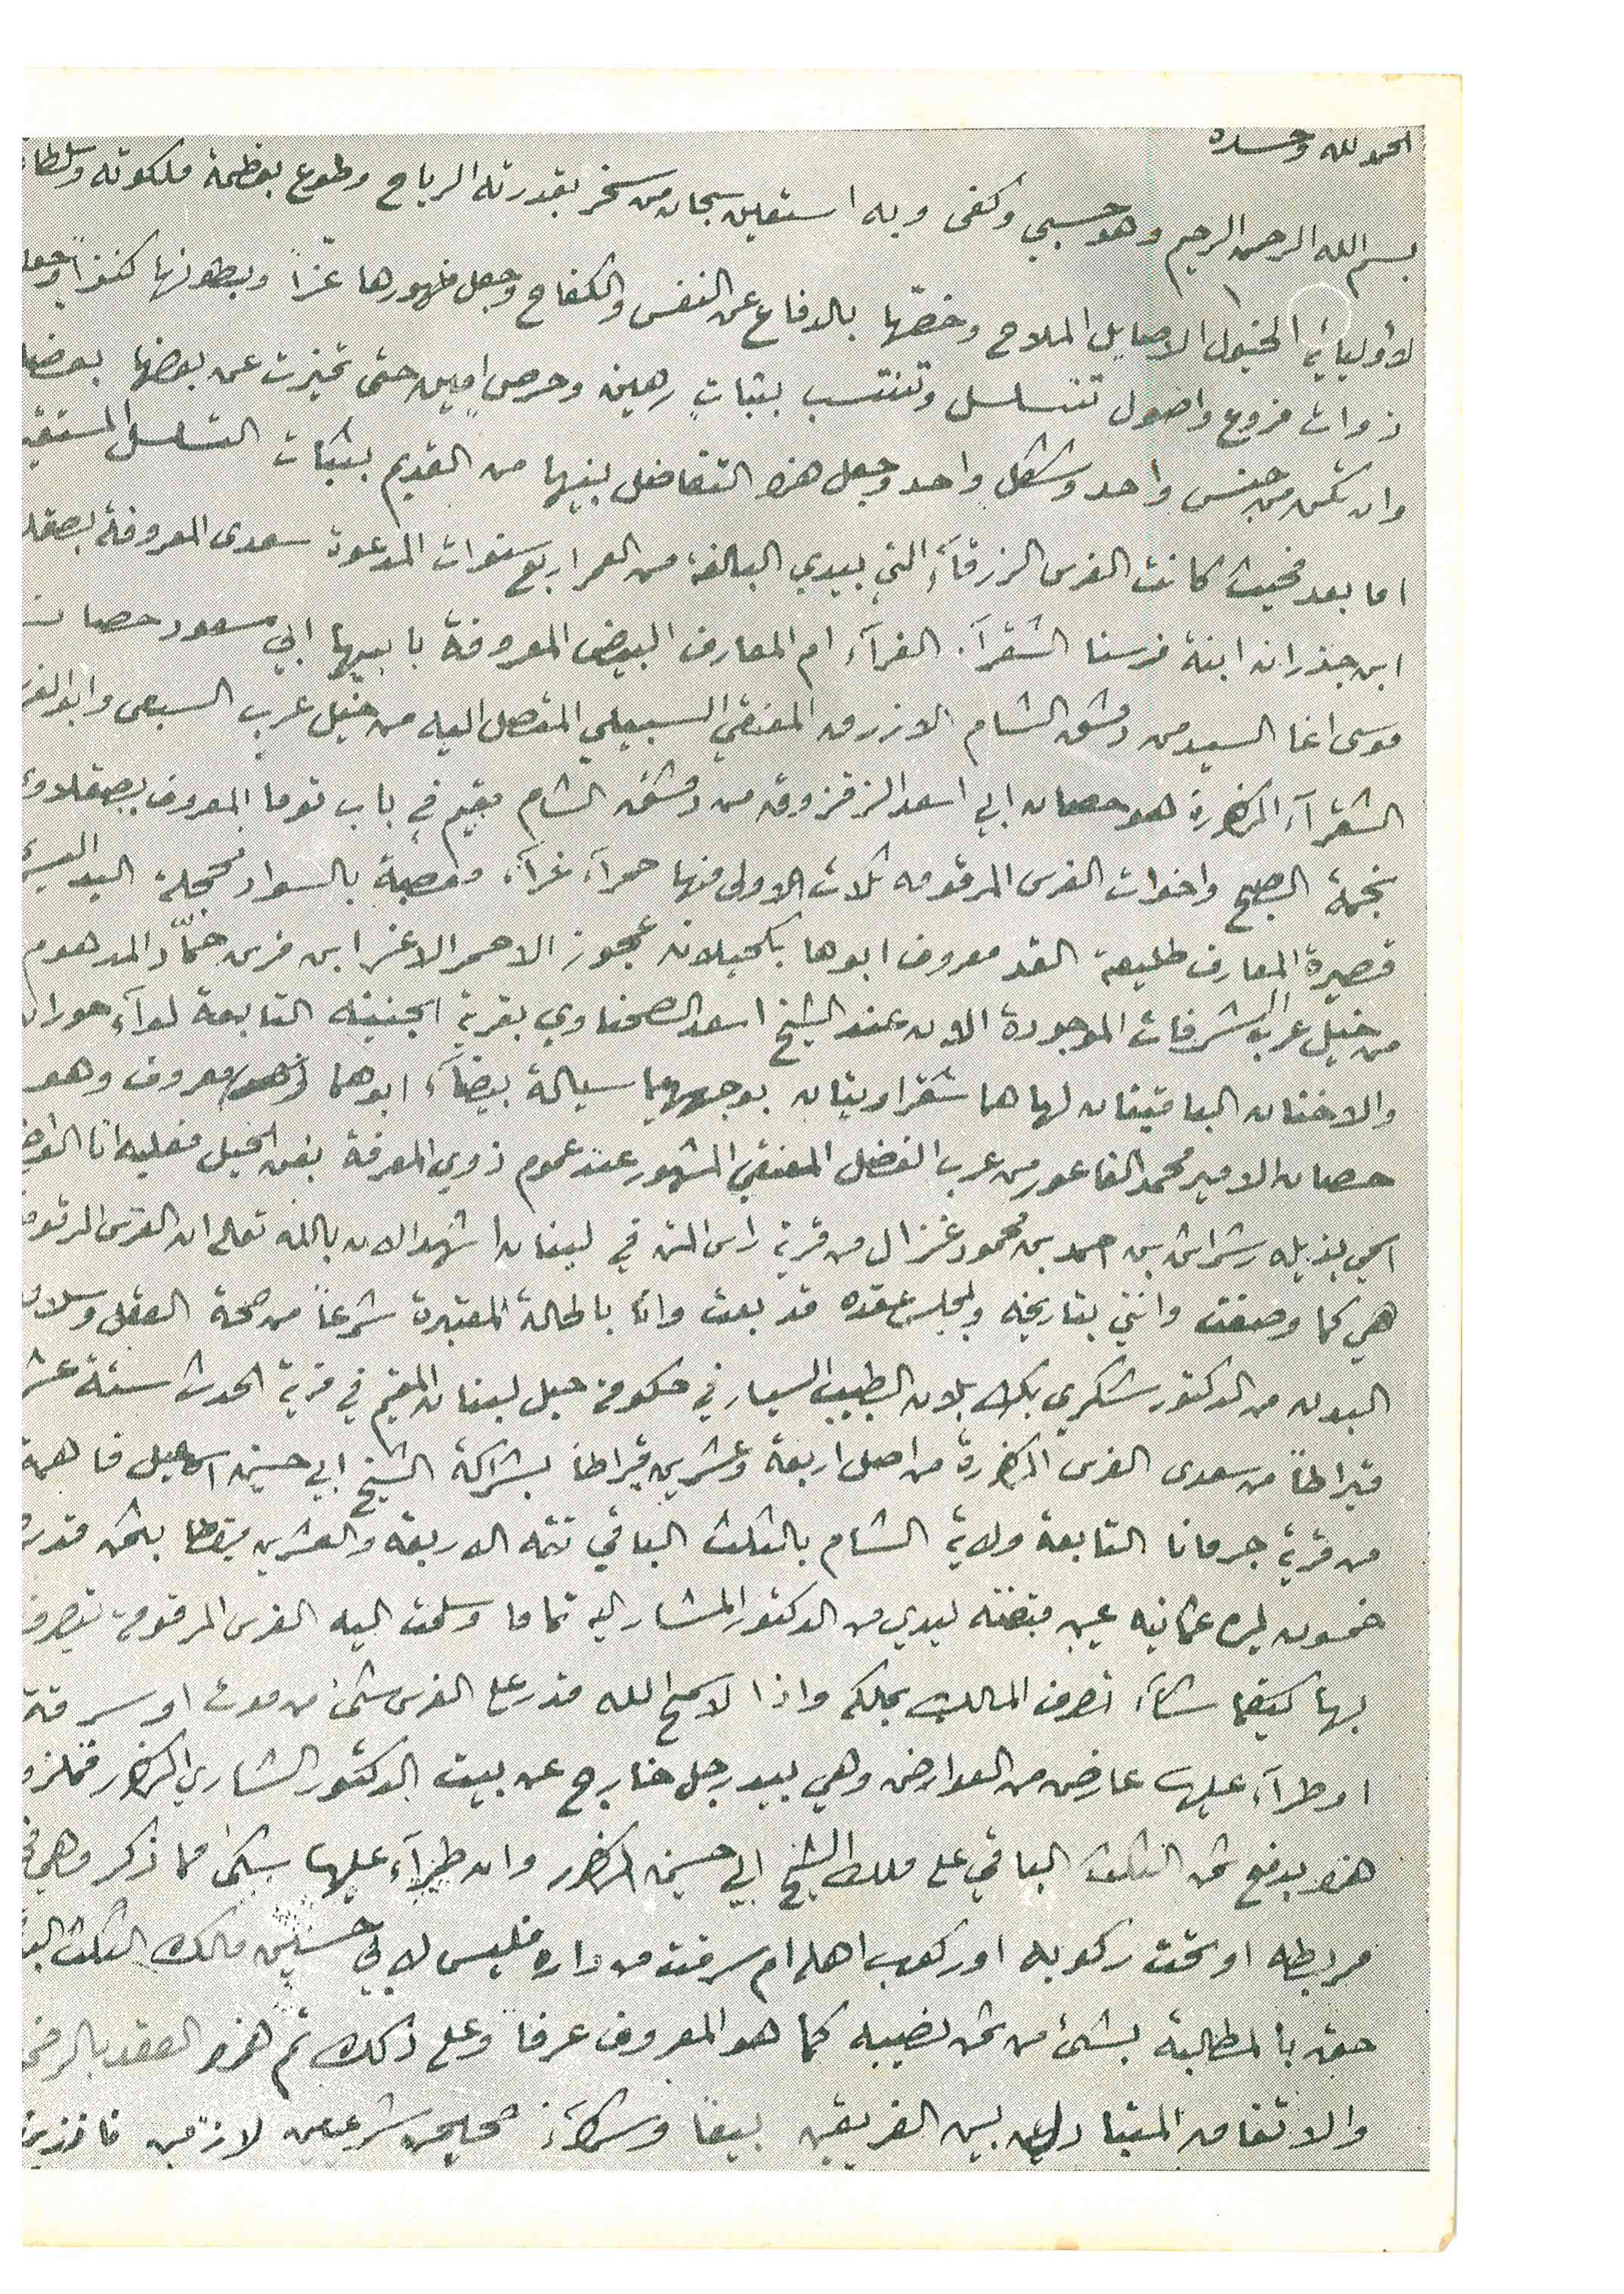 الحمد لله وحده
بسم الله الرحمن الرحيم وهو حسبي وكفى وبه استعين سبحان من سخر بقدرته الرياح وطوع بعظمة ملكوته وسلطا
لأوليائه الخيول الاصايل الملاح وخصّها بالدفاع عن النفس والكفاح وجعل ظهورها عزّاً وبطونها كنزاً وجعل
ذوات فروع واصول تتسلسل وتنتسب بثباتٍ رهين وحرصٍ امين حتى تميزت عن بعضها بعضا
وان تكن من جنس واحد وشكل واحد وجعل هذا التفاضل بينها من القديم بثبات التسلسل المستقيم
اما بعد فحيث كانت الفرس الزرقآء التي بيدي البالغة من العمر اربع سنوات المدعوة سعدى المعروفة بصقلا
ابن جذران ابنة فرسنا الشقرآء الغرآء ام المعارف البيض المعروفة بابيها ابي مسعود حصان
موسى اغا السيد من دمشق الشام الازرق المعنقي السبيلي المتصل اليه من خيل عرب السبعى وابو الفرس
الشقرآء المذكورة هو حصان ابي اسعد الزقزوق من دمشق الشام مقيم في باب توما المعروف بصقلاوي
نجمة الصبح واخوات الفرس المرقومه ثلاث الاولى منها حمرآء غرآء معصبة بالسواد محجلة اليد اليسرى
قصيرة المعارف طليعة القد معروف ابوها بكحيلان عجوز الاحمر الاغر ابن فرس حمّاد المدهوم
من خيل عرب الشرفات الموجودة الان عند الشيخ اسعد الصحناوي بقرية الجنينه التابعة لوآء حوران
والاختان الباقيتان لها هما شقراويتان بوجههما سيالة بيضآء ابوهما معروف وهو
حصان الامير محمد الفاعور من عرب الفضل المعنقي المشهور عند عموم ذوي المعرفة بفن الخيل فعليه انا الواضع
اسمي بذيله رشراش بن احمد بن محمود غزال من قرية راس المتن في لبنان اشهد الان بالله تعالى ان الفرس المرقومة
هي كما وصفت وانني بتاريخه وبمجلس عقده قد بعت وانا بالحالة المعتبرة شرعاً من صحة العقل وسلامة
البدن من الدكتور شكري بك بلان الطبيب السيار في حكومة جبل لبنان المقيم في قرية الحدث ستة عشر
قيراطاً من سعدى الفرس المذكورة من اصل اربعة وعشرين قيراطاً بشراكة الشيخ ابي حسين اسمعيل
من قرية جرمانا التابعة ولاية الشام بالثلث الباقي تتمة الاربعة والعشرين قيراطا بثمن قدره
خمسون ليره عثمانيه عين قبضته ليدي من الدكتور المشار اليه تماما وسلمت اليه الفرس المرقومة يتصرف
بها كيفما شآء تصرف المالك بملكه واذا لا سمح الله قدر على الفرس شئ من موت او سرقة
او طرآء عليها عارض من العوارض وهي بيد رجل خارج عن بيت الدكتور الشاري المذكور فملزوم
هذا بدفع ثمن الثلث الباقي على ملك الشيخ ابي حسين المذكور وان طرآء عليها شئ مما ذكر وهي في
مربطه او تحت ركوبه او ركوب اهله ام سرقت من داره فليس لابي حسين مالك الثلث الباقي
حق بالمطالبة بشئ من ثمن نصيبه كما هو المعروف عرفا وعلى ذلك تم هذا العقد بالرضى
والاتفاق المتبادلين بين الفريقين بيعا وشرآء صحيحين شرعيين لازمين نافذين